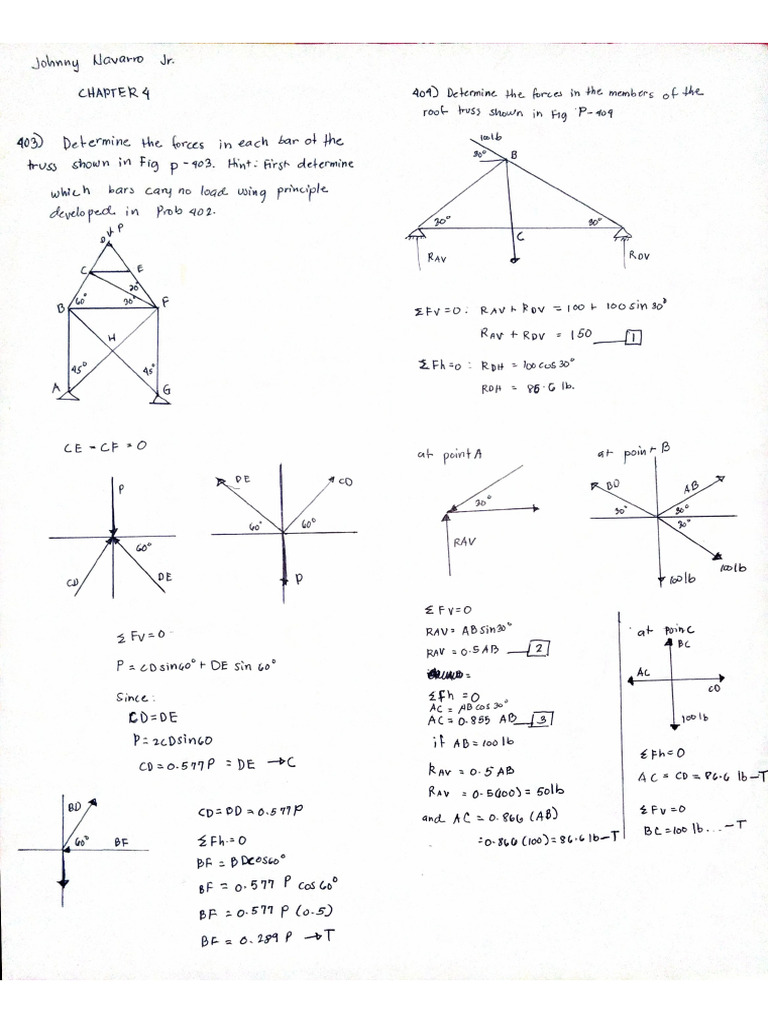 Johnny Navarro Jr.
CHAPTER 4
403) Determine the forces in each bar of the
truss shown in Fig p-403. Hint: First determine
which bars carry no load using principle
developed in Prob 402.
D P
C E
20°
B 60° 30° F
H
45° 45°
A G
CE - CF = 0
P
60°
CD DE
DE CD
60° 60°
P
ΣFv=0
P = CD sin60° + DE sin 60°
Since:
CD=DE
P= 2CD sin60
CD = 0.577P = DE → C
BD
60° BF
CD = BD = 0.577P
ΣFh=0
BF = BDcos60°
BF = 0.577 P cos 60°
BF = 0.577 P (0.5)
BF = 0.289 P → T
404) Determine the forces in the members of the
roof truss shown in Fig P-404
100lb
30° B
30° 30°
C
RAV RDV
ΣFV=0: RAV + RDV = 100 + 100 sin 30°
RAV + RDV = 150 1
ΣFh=0 : RDH = 100 cos 30°
RDH = 86.6 lb.
at point A
30°
RAV
at point B
BD AB
30° 30°
30°
100lb
100lb
ΣFV=0
RAV = AB sin30°
RAV = 0.5 AB 2
Σfh = 0
AC = AB cos 30°
AC = 0.855 AB 3
if AB = 100 lb
RAV = 0.5 AB
RAV = 0.5(100) = 50lb
and AC = 0.866 (AB)
= 0.866 (100) = 86.6 lb-T
at point C
BC
AC
CD
100 lb
ΣFh=0
AC = CD = 86.6 lb -T
ΣFV=0
BC = 100 lb ... -T